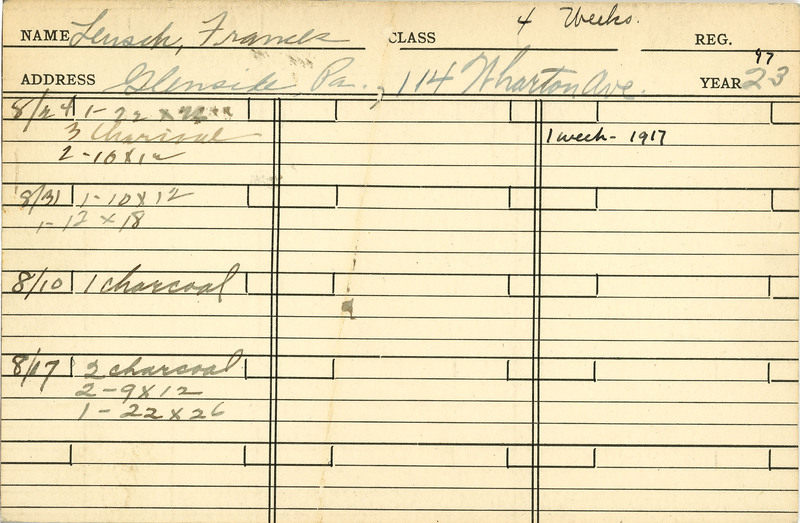 4 Weeks.
NAME Lensch, Frances CLASS REG.
97
ADDRESS Glenside, Pa., 114 Wharton Ave. YEAR 23
8/24 1-22 x
3 Charcoal
1 week - 1917
2-10x12
8/31 1-10x12
1-12 x 18
8/10 1 charcoal
8/17 2 charcoal
2-9x12
1-22x26